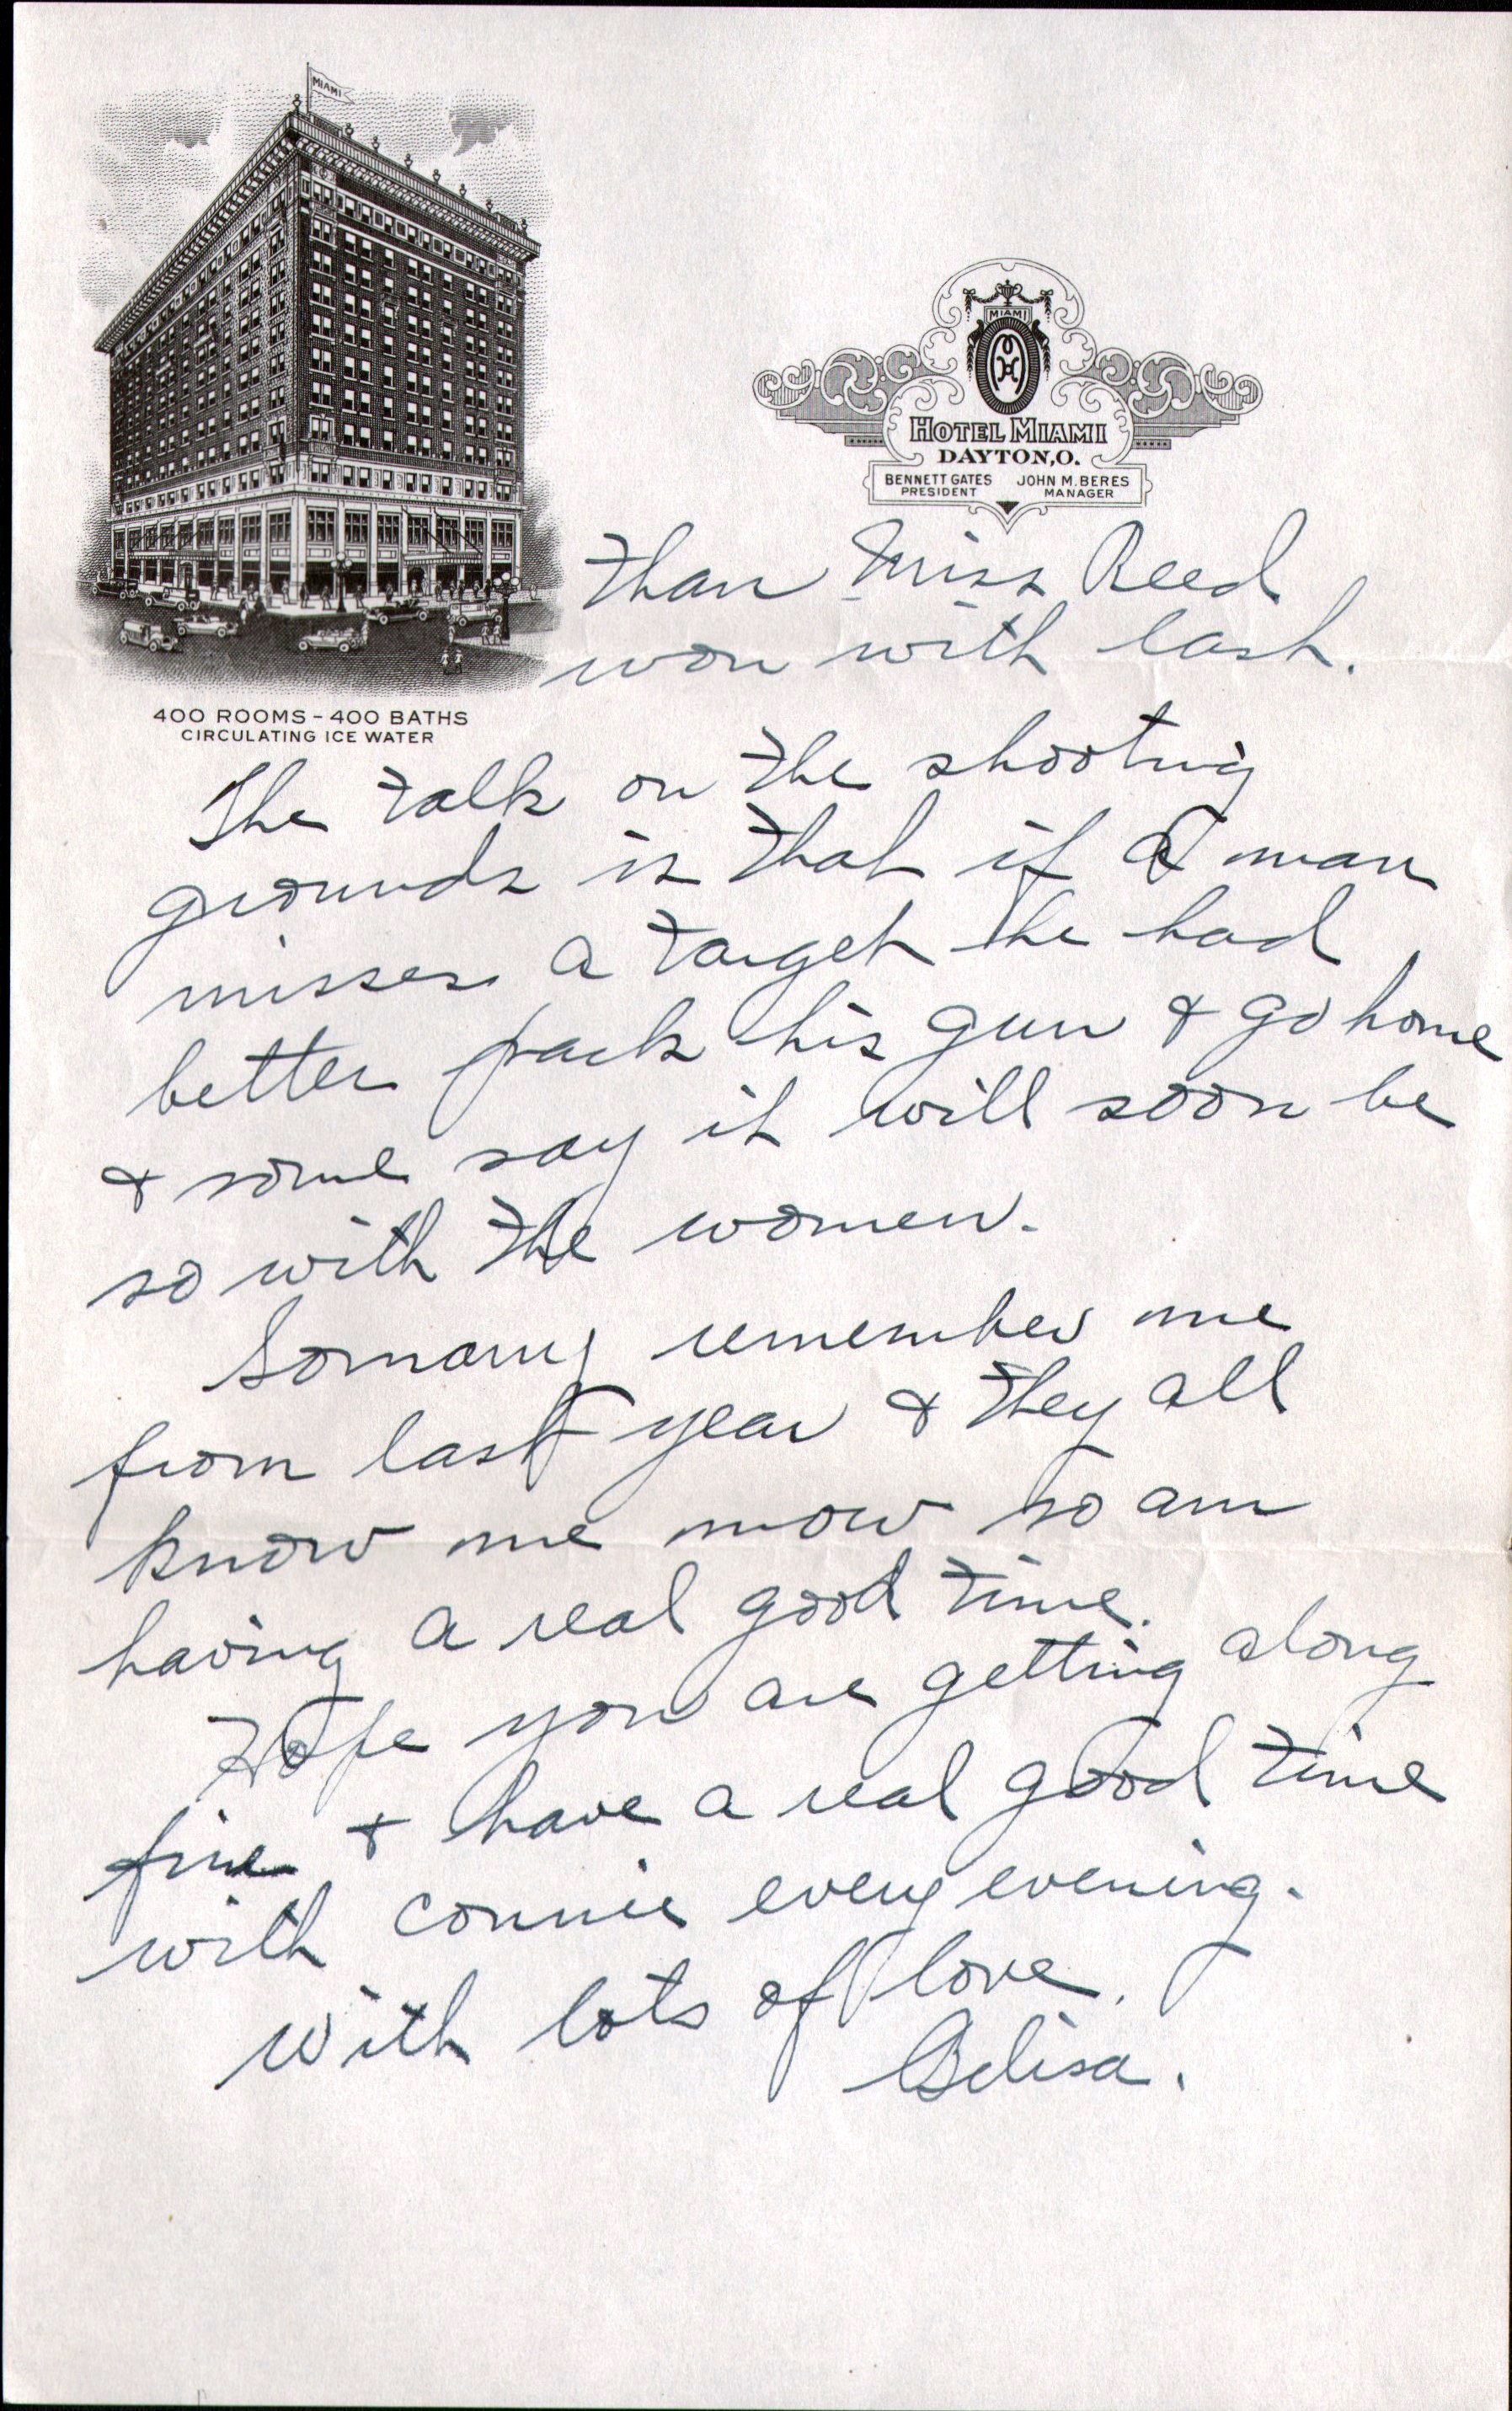 MIAMI
MIAMI
HOTEL MIAMI
DAYTON, O.
BENNETT GATES JOHN M. BERES
PRESIDENT MANAGER
400 ROOMS - 400 BATHS
CIRCULATING ICE WATER
than Miss Reed
won with last.
The talk on the shooting
grounds is that if a man
misses a target he had
better pack his gun & go home
& some say it will soon be
so with the women.
So many remember me
from last year & they all
know me now so am
having a real good time.
Hope you are getting along
fine & have a real good time
with Connie every evening.
With lots of love.